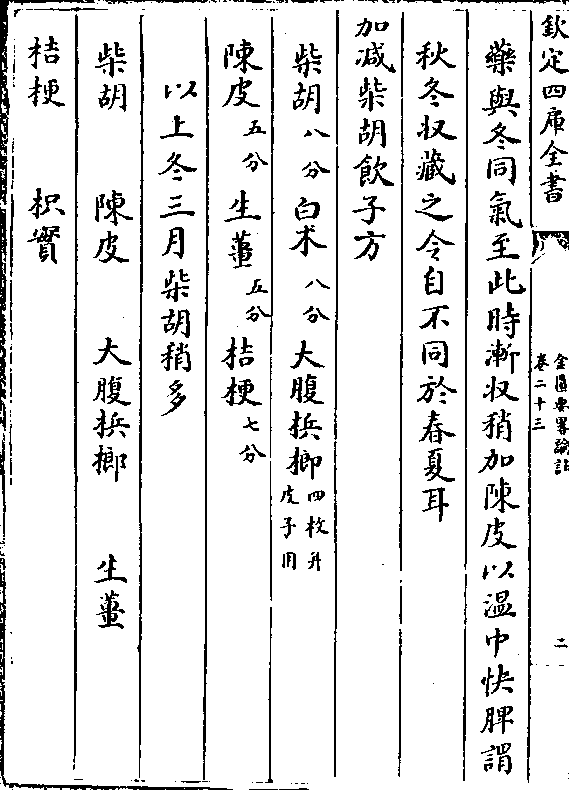 欽定四庫全書
金匱要畧論註
卷二十三
二
藥與冬同氣至此時漸収稍加陳皮以溫中快脾謂
秋冬収藏之令自不同於春夏耳
加减柴胡飲子方
柴胡八分 白术八分 大腹梹榔四枚并皮子用
陳皮五分 生薑五分 桔梗七分
以上冬三月柴胡稍多
柴胡 陳皮 大腹梹榔 生薑
桔梗 枳實